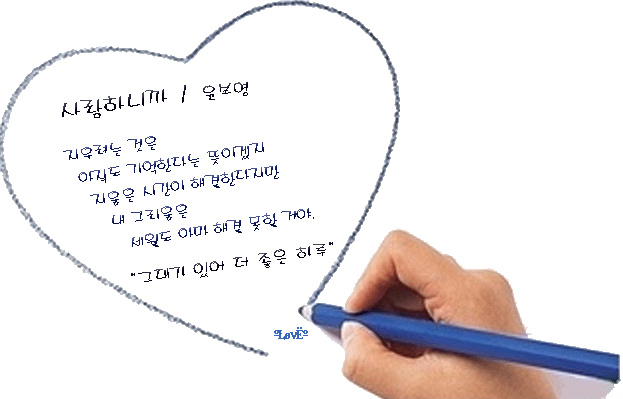 사랑하니까 / 윤보영
지우려는 것은
아직도 기억한다는 뜻이겠지
지움은 시간이 해결한다지만
내 그리움은
세월도 아마 해결 못할 거야.
"그대가 있어 더 좋은 하루"
ºLøvËº